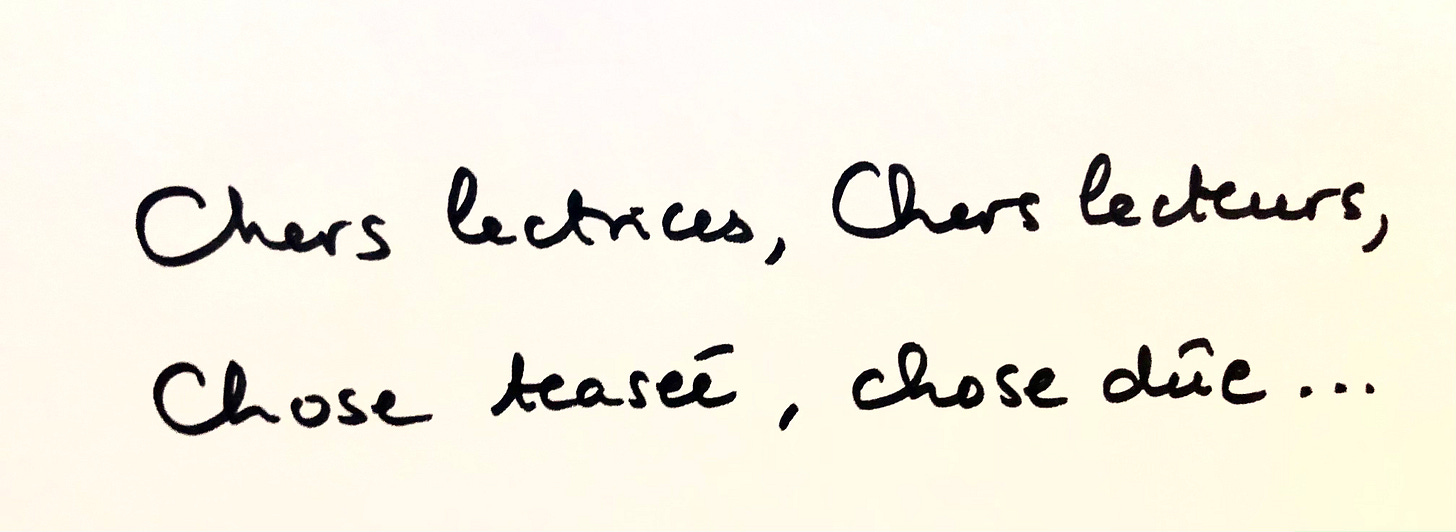 Chers lectrices, Chers lecteurs,
Chose teaseé, chose dûe...